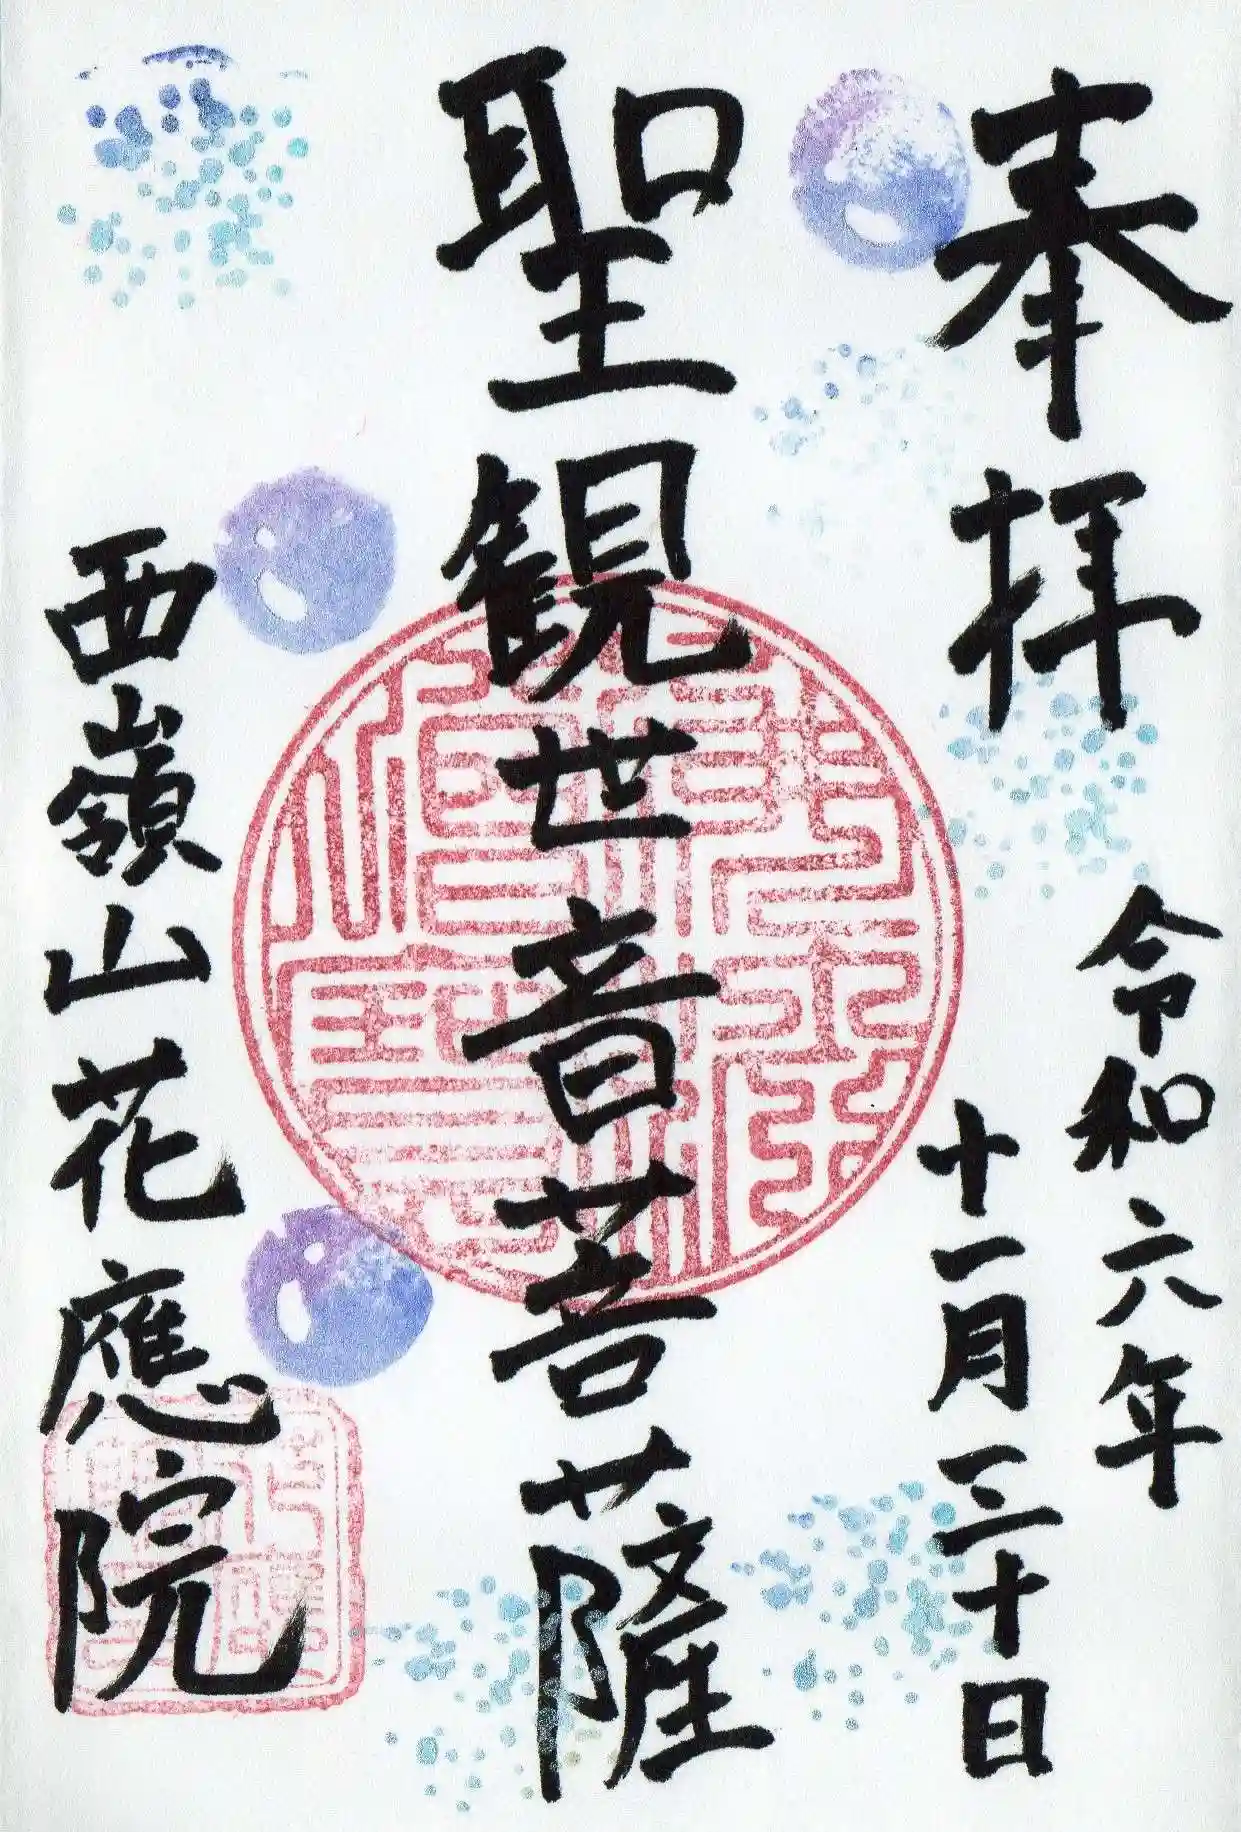 奉拝
令和六年
十一月三十日
聖観世音菩薩
西嶺山花應院